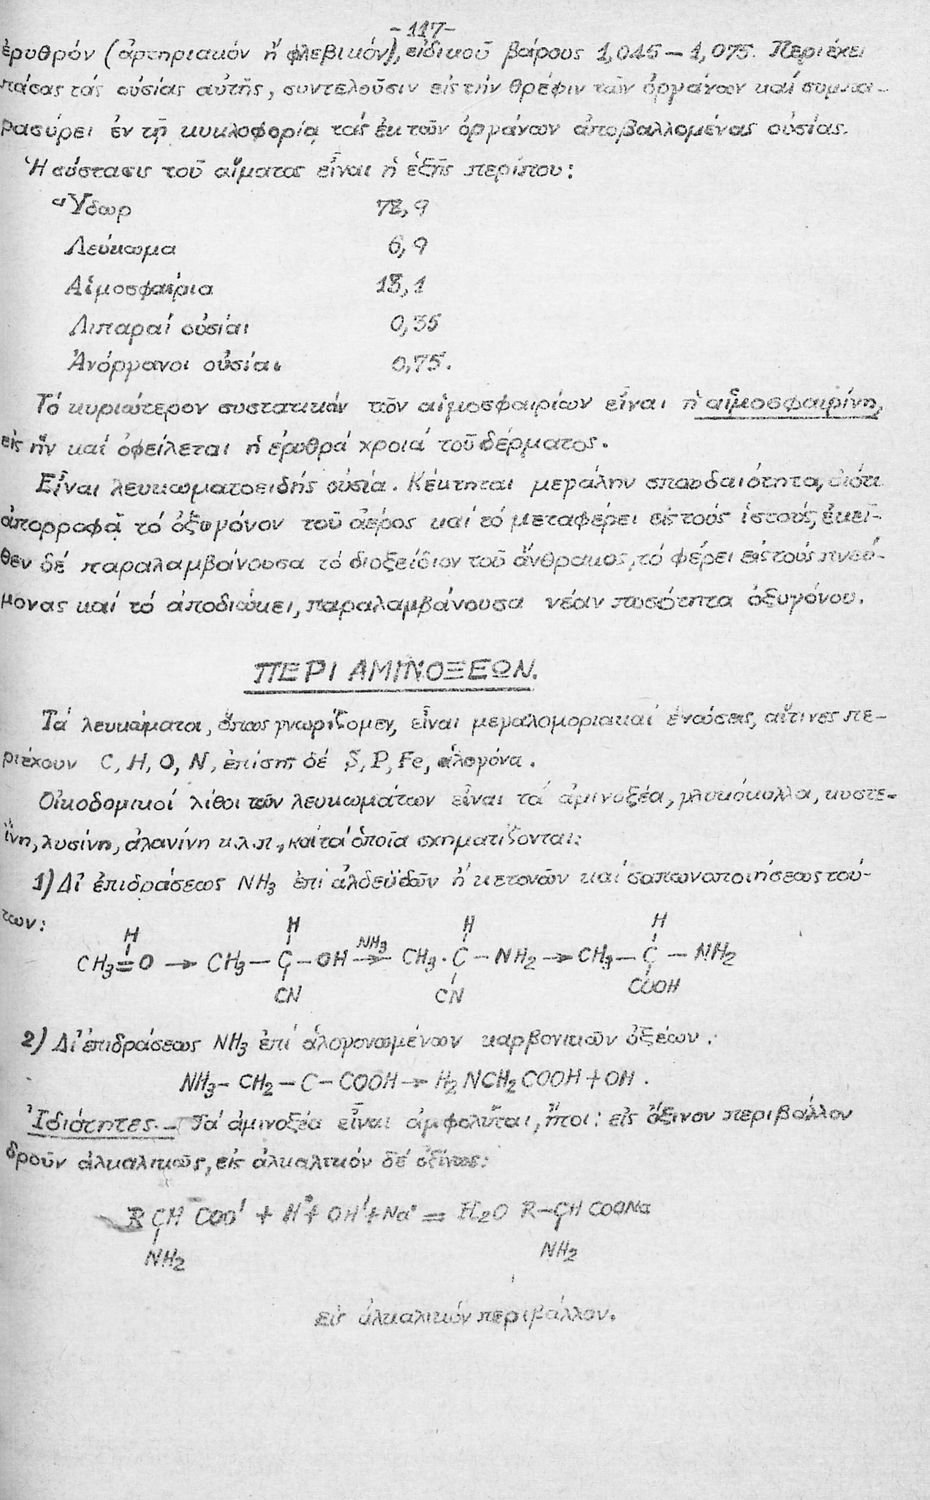 -117-
ἐρυθρόν (ἀρτηριακόν ἤ φλεβικόν), εἰδικοῦ βάρους 1,045 – 1,075. Περιέχει
πάσας τάς οὐσίας αὐτῆς, συντελοῦσιν εἰς τήν θρέψιν τῶν ὀργάνων καί συμπα-
ρασύρει ἐν τῇ κυκλοφορίᾳ τάς ἐκ τῶν ὀργάνων ἀποβαλλομένας οὐσίας.
Ἡ σύστασις τοῦ αἵματος εἶναι ἡ ἑξῆς περίπου:
Ὕδωρ 78,9
Λεύκωμα 6,9
Αἱμοσφαίρια 18,1
Λιπαραί οὐσίαι 0,35
Ἀνόργανοι οὐσίαι 0,75.
Τό κυριώτερον συστατικόν τῶν αἱμοσφαιρίων εἶναι ἡ αἱμοσφαιρίνη,
εἰς ἥν καί ὀφείλεται ἡ ἐρυθρά χροιά τοῦ δέρματος.
Εἶναι λευκωματοειδής οὐσία. Κέκτηται μεγάλην σπουδαιότητα, διότι
ἀπορροφᾷ τό ὀξυγόνον τοῦ ἀέρος καί τό μεταφέρει εἰς τούς ἱστούς, ἐκεῖ-
θεν δέ παραλαμβάνουσα τό διοξείδιον τοῦ ἄνθρακος, τό φέρει εἰς τούς πνεύ-
μονας καί τό ἀποδιώκει, παραλαμβάνουσα νέαν ποσότητα ὀξυγόνου.
ΠΕΡΙ ΑΜΙΝΟΞΕΩΝ.
Τά λευκώματα, ὅπως γνωρίζομεν, εἶναι μεγαλομοριακαί ἑνώσεις, αἵτινες πε-
ριέχουν C, H, O, N, ἐπίσης δέ S, P, Fe, ἁλογόνα.
Οἰκοδομικοί λίθοι τῶν λευκωμάτων εἶναι τά ἀμινοξέα, γλυκόκολλα, κυστε-
ΐνη, λυσίνη, ἀλανίνη κ.λ.π., καί τά ὁποῖα σχηματίζονται:
1) Δι' ἐπιδράσεως NH3 ἐπί ἀλδεϋδῶν ἤ κετονῶν καί σαπωνοποιήσεως τού-
των:
H H H H
CH3=O → CH3–C–OH NH3→ CH3·C–NH2 → CH3–C–NH2
CN CN COOH
2) Δι' ἐπιδράσεως NH3 ἐπί ἁλογονωμένων καρβονικῶν ὀξέων:
NH3–CH2–C–COOH → H2NCH2COOH + OH.
Ἰδιότητες.– Τά ἀμινοξέα εἶναι ἀμφολῦται, ἤτοι: εἰς ὄξινον περιβάλλον
δροῦν ἀλκαλικῶς, εἰς ἀλκαλικόν δέ ὀξίνως:
R CH COO' + H+ + OH' + Na+ = H2O R–CH COONa
NH2 NH2
εἰς ἀλκαλικόν περιβάλλον.